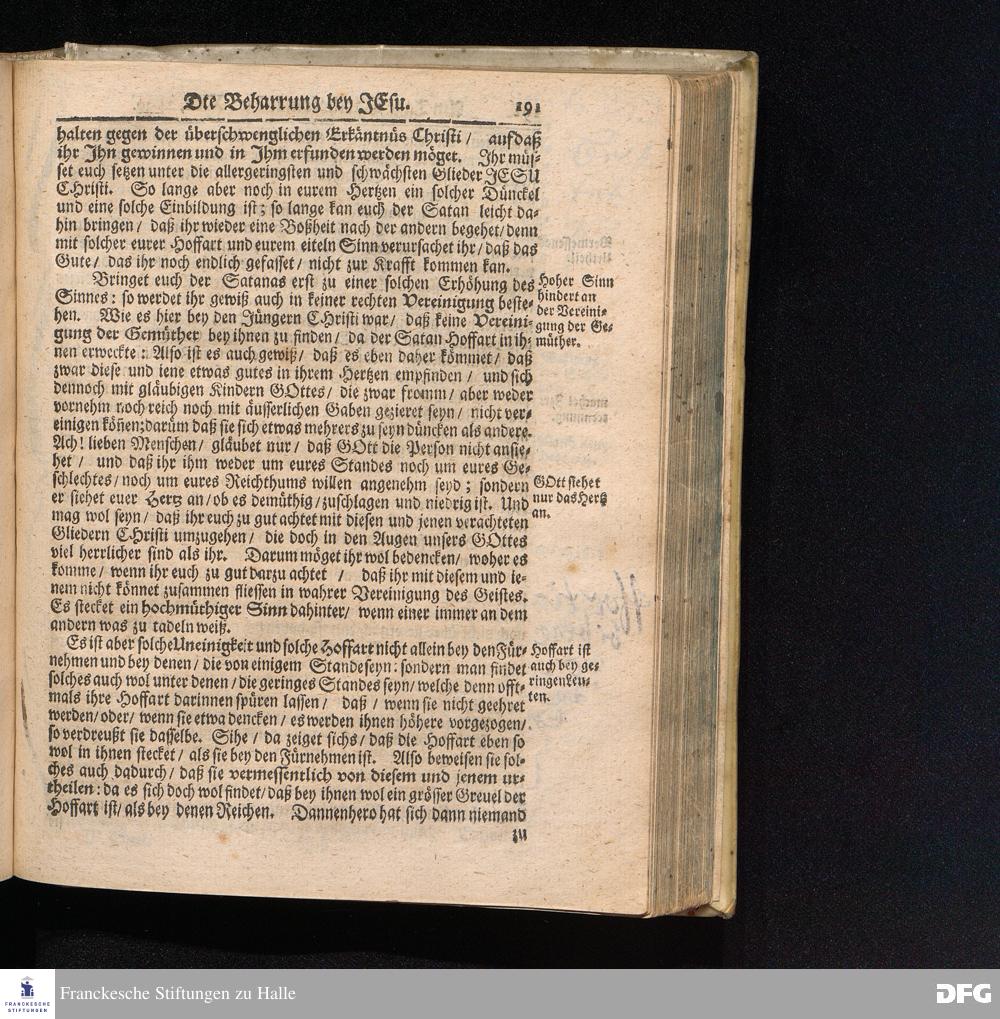 Dte Beharrung bey JEsu. 191
halten gegen der überschwenglichen Erkäntnüs Christi / auf daß
ihr Ihn gewinnen und in Ihm erfunden werden möget. Ihr müs-
set euch setzen unter die allergeringsten und schwächsten Glieder JESU
CHristi. So lange aber noch in eurem Hertzen ein solcher Dünckel
und eine solche Einbildung ist; so lange kan euch der Satan leicht da-
hin bringen / daß ihr wieder eine Boßheit nach der andern begehet / denn
mit solcher eurer Hoffart und eurem eiteln Sinn verursachet ihr / daß das
Gute / das ihr noch endlich gefasset / nicht zur Krafft kommen kan.
Bringet euch der Satanas erst zu einer solchen Erhöhung des
Sinnes: so werdet ihr gewiß auch in keiner rechten Vereinigung beste-
hen. Wie es hier bey den Jüngern CHristi war / daß keine Vereini-
gung der Gemüther bey ihnen zu finden / da der Satan Hoffart in ih-
nen erweckte: Also ist es auch gewiß / daß es eben daher kömmet / daß
zwar diese und iene etwas gutes in ihrem Hertzen empfinden / und sich
dennoch mit gläubigen Kindern GOttes / die zwar fromm / aber weder
vornehm noch reich noch mit äusserlichen Gaben gezieret seyn / nicht ver-
einigen köñen; darum daß sie sich etwas mehrers zu seyn düncken als andere.
Ach! lieben Menschen / gläubet nur / daß GOtt die Person nicht ansie-
het / und daß ihr ihm weder um eures Standes noch um eures Ge-
schlechtes / noch um eures Reichthums willen angenehm seyd; sondern
er siehet euer Hertz an / ob es demüthig / zuschlagen und niedrig ist. Und
mag wol seyn / daß ihr euch zu gut achtet mit diesen und jenen verachteten
Gliedern CHristi umzugehen / die doch in den Augen unsers GOttes
viel herrlicher sind als ihr. Darum möget ihr wol bedencken / woher es
komme / wenn ihr euch zu gut darzu achtet / daß ihr mit diesem und ie-
nem nicht könnet zusammen fliessen in wahrer Vereinigung des Geistes.
Es stecket ein hochmüthiger Sinn dahinter / wenn einer immer an dem
andern was zu tadeln weiß.
Es ist aber solche Uneinigkeit und solche Hoffart nicht allein bey den Für-
nehmen und bey denen / die von einigem Stande seyn: sondern man findet
solches auch wol unter denen / die geringes Standes seyn / welche denn offt-
mals ihre Hoffart darinnen spüren lassen / daß / wenn sie nicht geehret
werden / oder / wenn sie etwa dencken / es werden ihnen höhere vorgezogen /
so verdreußt sie dasselbe. Sihe / da zeiget sichs / daß die Hoffart eben so
wol in ihnen stecket / als sie bey den Fürnehmen ist. Also beweisen sie sol-
ches auch dadurch / daß sie vermessentlich von diesem und jenem ur-
theilen: da es sich doch wol findet / daß bey ihnen wol ein grösser Greuel der
Hoffart ist / als bey denen Reichen. Dannenhero hat sich dann niemand
zu
Hoher Sinn
hindert an
der Vereini-
gung der Ge-
müther.
GOtt siehet
nur das Hertz
an.
Hoffart ist
auch bey ge-
ringen Leu-
ten.
FRANCKESCHE
STIFTUNGEN
Franckesche Stiftungen zu Halle
DFG